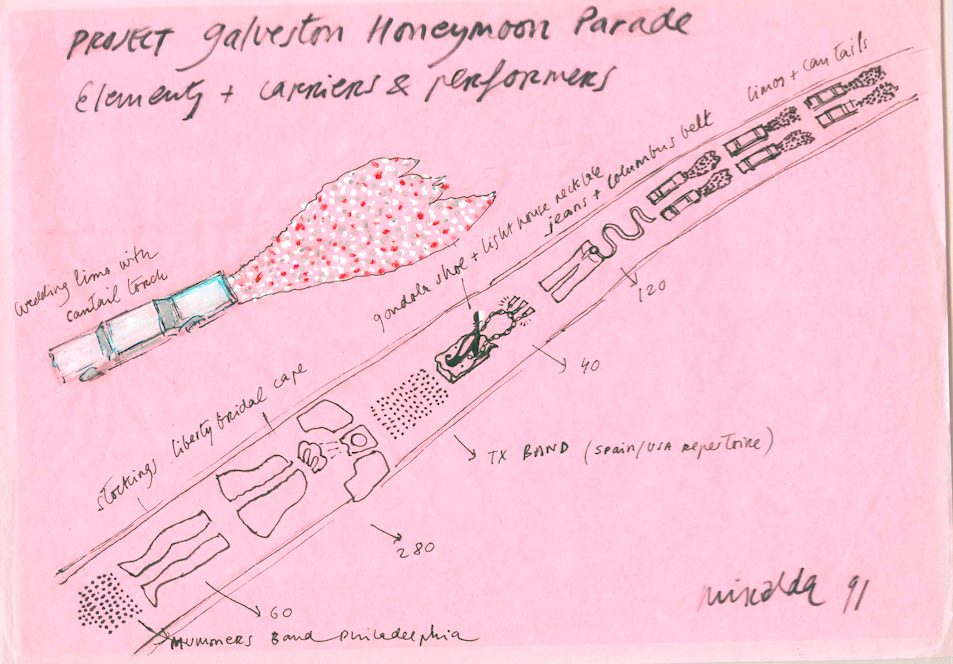 PROJECT Galveston Honeymoon Parade
Elements + carriers & performers
limos + cantails
gondola shoe + lighthouse necklace
jeans + columbus belt
wedding limo with
cantail torch
120
40
stockings liberty bridal cape
TX BAND (SPAIN/USA REPERTOIRE)
280
60
MUMMERS Band PhiladElphia
miralda 91